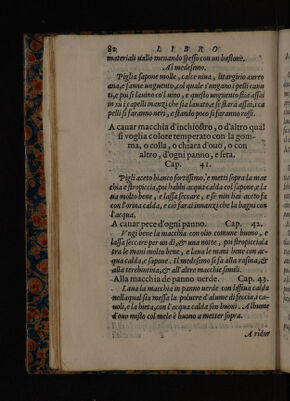 82 LIBRO
materiali uallo menando spesso con un bastone.
Al medesimo.
Piglia sapone molle, calce uiua, litargirio aureo
ana, e fanne unguento, col quale s'ungano i pelli canu
ti, e poi si lauino col uino, e questo unguento stia assai
in su i capelli manzi che sia lauato, e se starà assai, i ca
pelli si faranno neri, e stando poco si faranno rossi.
A cauar macchia d'inchiostro, o d'altro qual
si voglia colore temperato con la gom-
ma, o colla, o chiara d'ouo, o con
altro, d'ogni panno, e seta.
Cap. 41.
Pigli aceto bianco fortissimo, e metti sopra la mac
chia e stropiccia, poi habbi acqua calda col sapone, e la
ua molto bene, e lassa seccare, e se non hai aceto fa
con l'orina calda, e cio farai innanzi che la bagni con
l'acqua.
A cauar pece d'ogni panno. Cap. 42.
Vngi bene la macchia con olio comune buono, e
lassa seccare per un dì, & una notte, poi stropicciala
tra le mani molto bene, e laua le mani bene con ac-
qua calda, e sapone. Il medesimo si fa alla rasina, &
alla terbentina, & all'altre macchie simili.
Alla macchia de panno uerde. Cap. 43.
Laua la macchia in panno uerde con lessiua calda
nella qual sia messa la poluere d'alume di feccia, i ca-
uoli, e la bieta, con l'acqua calda son buoni. Alume
d'ouo misto col mele è buono a metter sopra.
A ridur